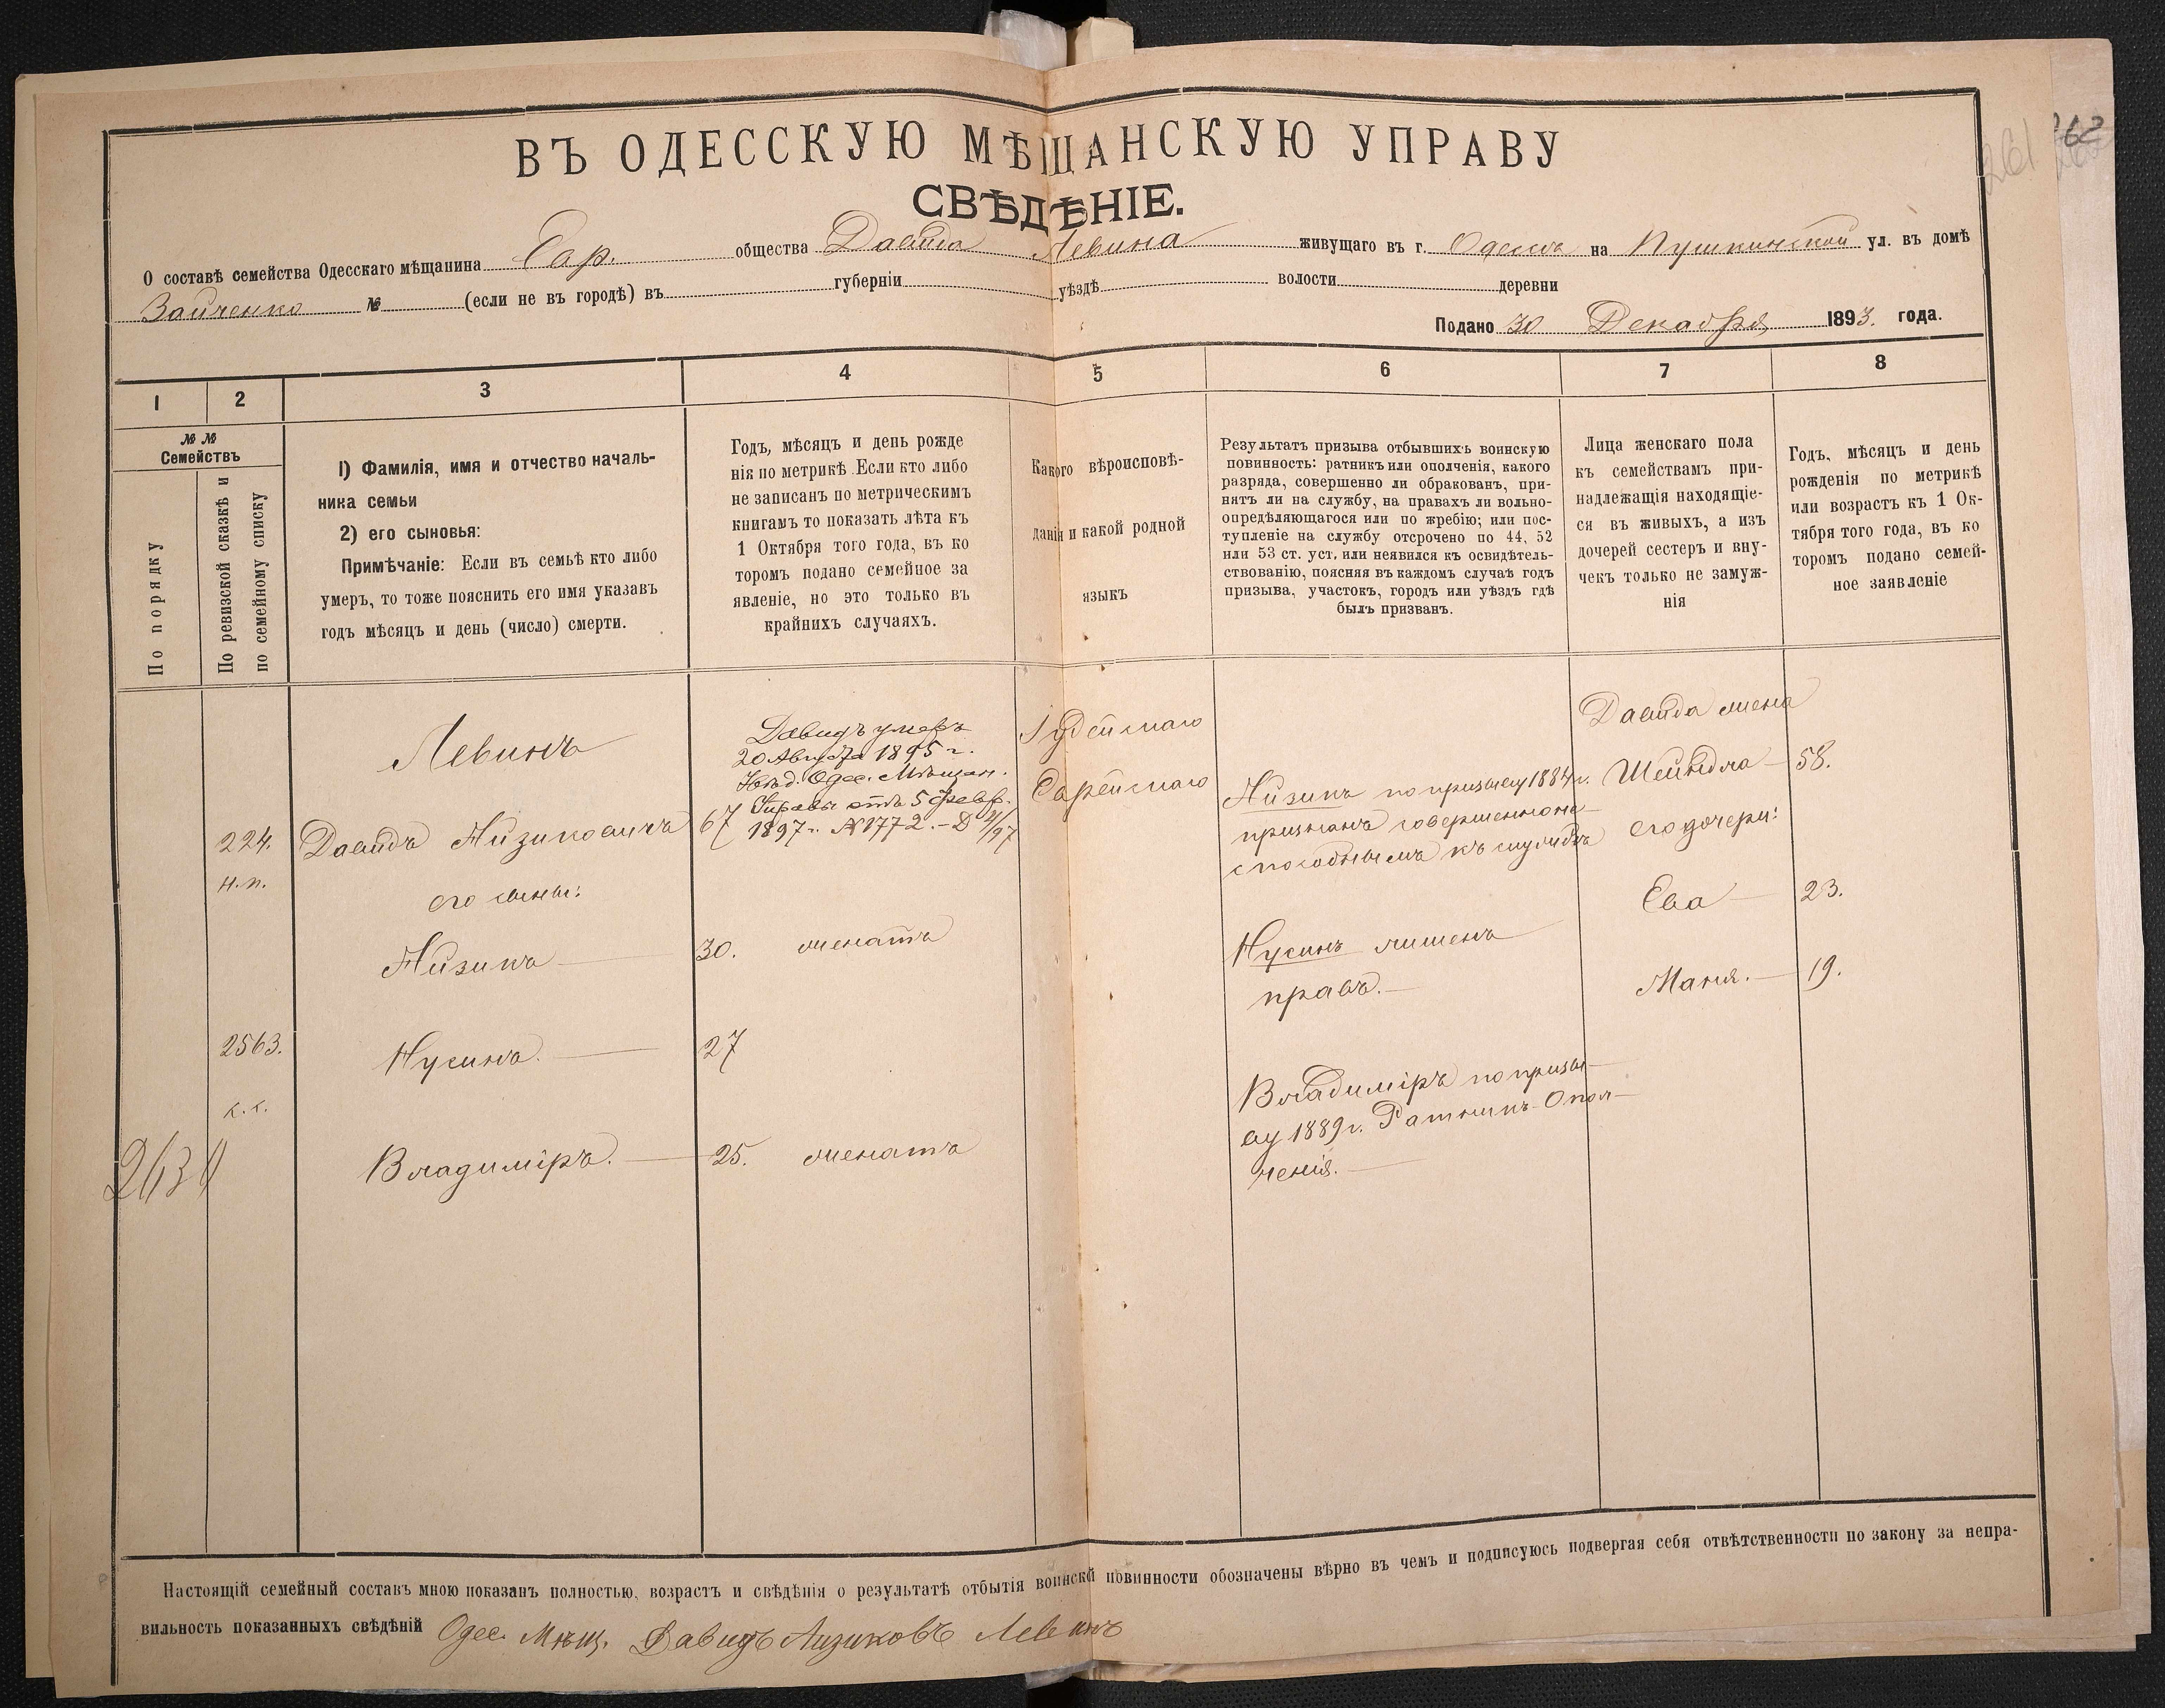 262
261
ВЪ ОДЕССКУЮ МѢЩАНСКУЮ УПРАВУ
СВѢДѢНІЕ.
О составѣ семейства Одесскаго мѣщанина Евр. общества Давида Левина живущаго въ г. Одессѣ на Пушкинской ул. въ домѣ
Зайченко № (если не въ городѣ) въ губерніи уѣздѣ волости деревни
Подано 30 Декабря 1893. года.
1 2 3 4 5 6 7 8
№ №
Семействъ
По порядку
По ревизской сказкѣ и
по семейному списку
1) Фамилія, имя и отчество началь-
ника семьи
2) его сыновья:
Примѣчаніе: Если въ семьѣ кто либо
умеръ, то тоже пояснить его имя указавъ
годъ мѣсяцъ и день (число) смерти.
Годъ, мѣсяцъ и день рожде
нія по метрикѣ. Если кто либо
не записанъ по метрическимъ
книгамъ то показать лѣта къ
1 Октября того года, въ ко
торомъ подано семейное за
явленіе, но это только въ
крайнихъ случаяхъ.
Какого вѣроисповѣ-
данія и какой родной
языкъ
Результатъ призыва отбывшихъ воинскую
повинность: ратникъ или ополченія, какого
разряда, совершенно ли обракованъ, при-
нятъ ли на службу, на правахъ ли вольно-
опредѣляющагося или по жребію; или пос-
тупленіе на службу отсрочено по 44, 52
или 53 ст. уст. или неявился къ освидѣтель-
ствованію, поясняя въ каждомъ случаѣ годъ
призыва, участокъ, городъ или уѣздъ гдѣ
былъ призванъ.
Лица женскаго пола
къ семействамъ при-
надлежащія находящіе-
ся въ живыхъ, а изъ
дочерей сестеръ и вну-
чекъ только не замуж-
нія
Годъ, мѣсяцъ и день
рожденія по метрикѣ
или возрастъ къ 1 Ок-
тября того года, въ ко
торомъ подано семей-
ное заявленіе
Левинъ
224.
н.п.
Давидъ Айзиковичъ 67
его сыны:
Айзикъ 30. женатъ
2563.
с.с.
Нусинъ. 27
Владиміръ. 25. женатъ
Давидъ умеръ
20 Августа 1895 г.
Увѣд. Одес. Мѣщан.
Управы отъ 5 Февр.
1897 г. № 1772.
Іудейскаго
Еврейскаго
Айзикъ по призыву 1884 г.
признанъ совершенно не-
способнымъ къ службѣ
Нусинъ лишенъ
правъ.
Владиміръ по призы-
ву 1889 г. Ратникъ Опол-
ченія.
Давида жена
Шейндля 58.
его дочери:
Ева 23.
Маня. 19.
Настоящій семейный составъ мною показанъ полностью, возрастъ и свѣдѣнія о результатѣ отбытія воинской повинности обозначены вѣрно въ чемъ и подписуюсь подвергая себя отвѣтственности по закону за непра-
вильность показанныхъ свѣдѣній Одес. Мѣщ. Давидъ Айзиковъ Левинъ